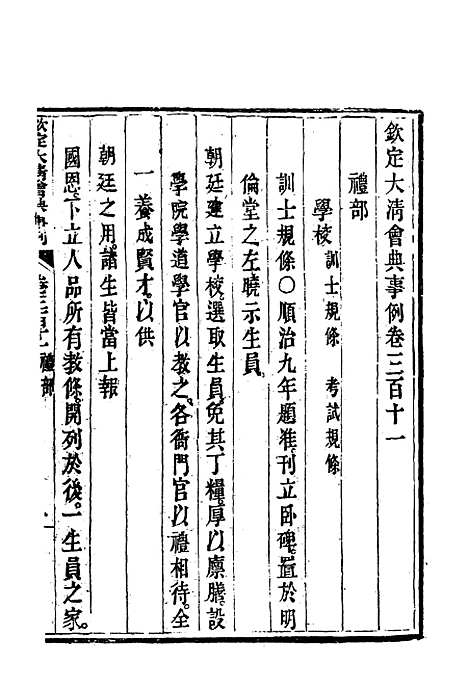 欽定大清會典事例卷三百十一
禮部
學校 訓士規條 考試規條
訓士規條〇順治九年題准。刊立卧碑。置於明
倫堂之左。曉示生員。
朝廷建立學校。選取生員。免其丁糧。厚以廩膳。設
學院學道學官以教之。各衙門官以禮相待。全
一養成賢才。以供
朝廷之用。諸生皆當上報
國恩。下立人品。所有教條。開列於後。一生員之家。
欽定大清會典事例 禮部